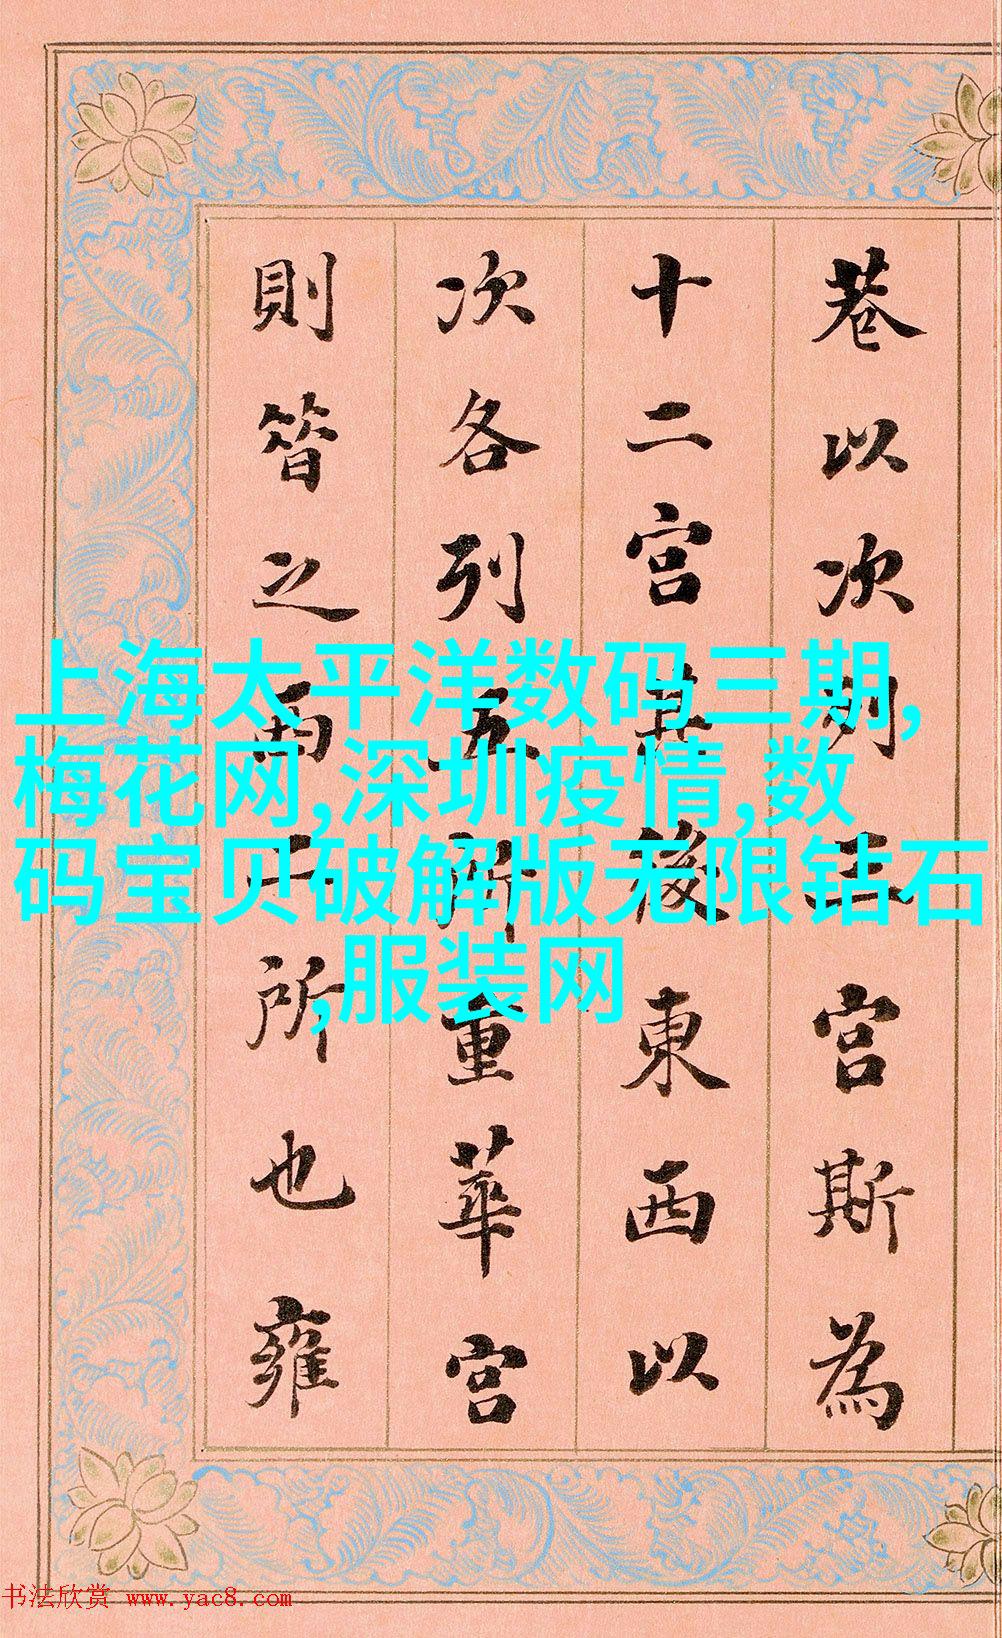 巷以次列三宮斯為
十二宮其後東西以
次各列五所重華宮
則昔之西二所也雍
上海太平洋数码三期,
梅花网,深圳疫情,数
码宝贝破解版无限钻石
,服装网
书法欣赏 www.yac8.com